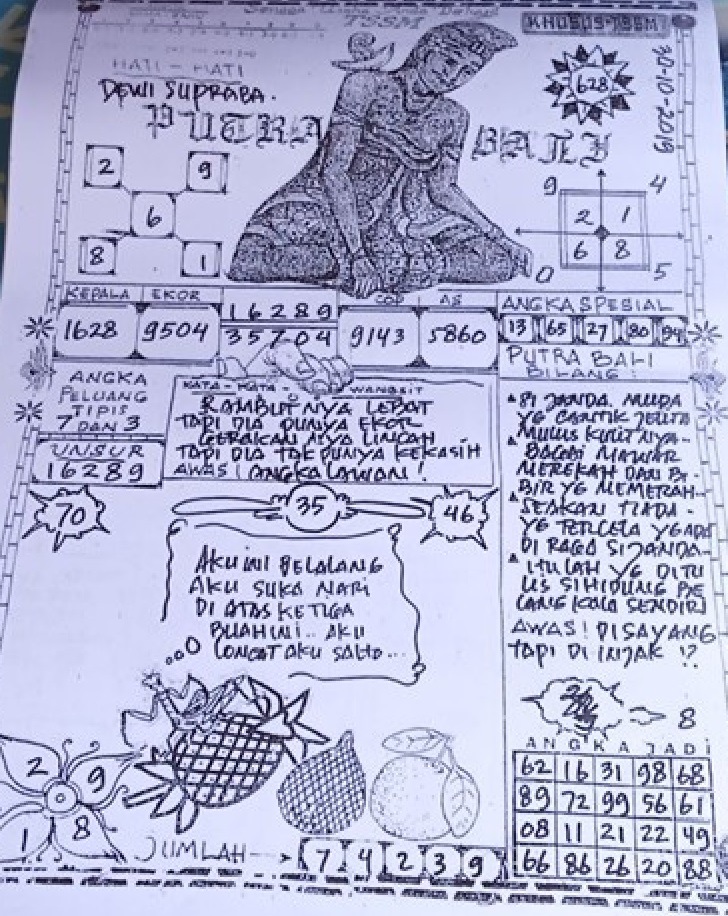 TSSM
KHUSUS-TSSM
HATI-HATI
DEWI SUPRABA.
PUTRA BALI
628
30-10-2019
2 9
6
8 1
9 4
2 1
6 8
0 5
KEPALA EKOR
1628 9504
16289
35704
COP AS
9143 5860
ANGKA SPESIAL
13 65 27 80 94
PUTRA BALI
BILANG:
ANGKA
PELUANG
TIPIS
7 DAN 3
UNSUR
16289
KATA-KATA WANGSIT
RAMBUTNYA LEBAT
TAPI DIA PUNYA EKOR
GERAKAN NYA LINCAH
TAPI DIA TAK PUNYA KEKASIH
AWAS! ANGKA LAWAN!
70
35
46
AKU INI BELALANG
AKU SUKA NARI
DI ATAS KETIGA
BUAH INI.. AKU
LONCAT AKU SALTO...
SI JANDA MUDA
YG CANTIK JELITA
MULUS KULITNYA-
BAGAI MAWAR
MEREKAH DAN BI-
BIR YG MEMERAH-
SEAKAN TIADA-
YG TERCELA YG ADA
DI RAGA SI JANDA-
ITU LAH YG DI TU
LIS SI HIDUNG BE
LANG KALA SENDIRI
AWAS! DISAYANG
TAPI DI INJAK !?
8
ANGKA JADI
62 16 31 98 68
89 72 99 56 61
08 11 21 22 49
66 86 26 20 88
2 9
1 8
JUMLAH
7 4 2 3 9